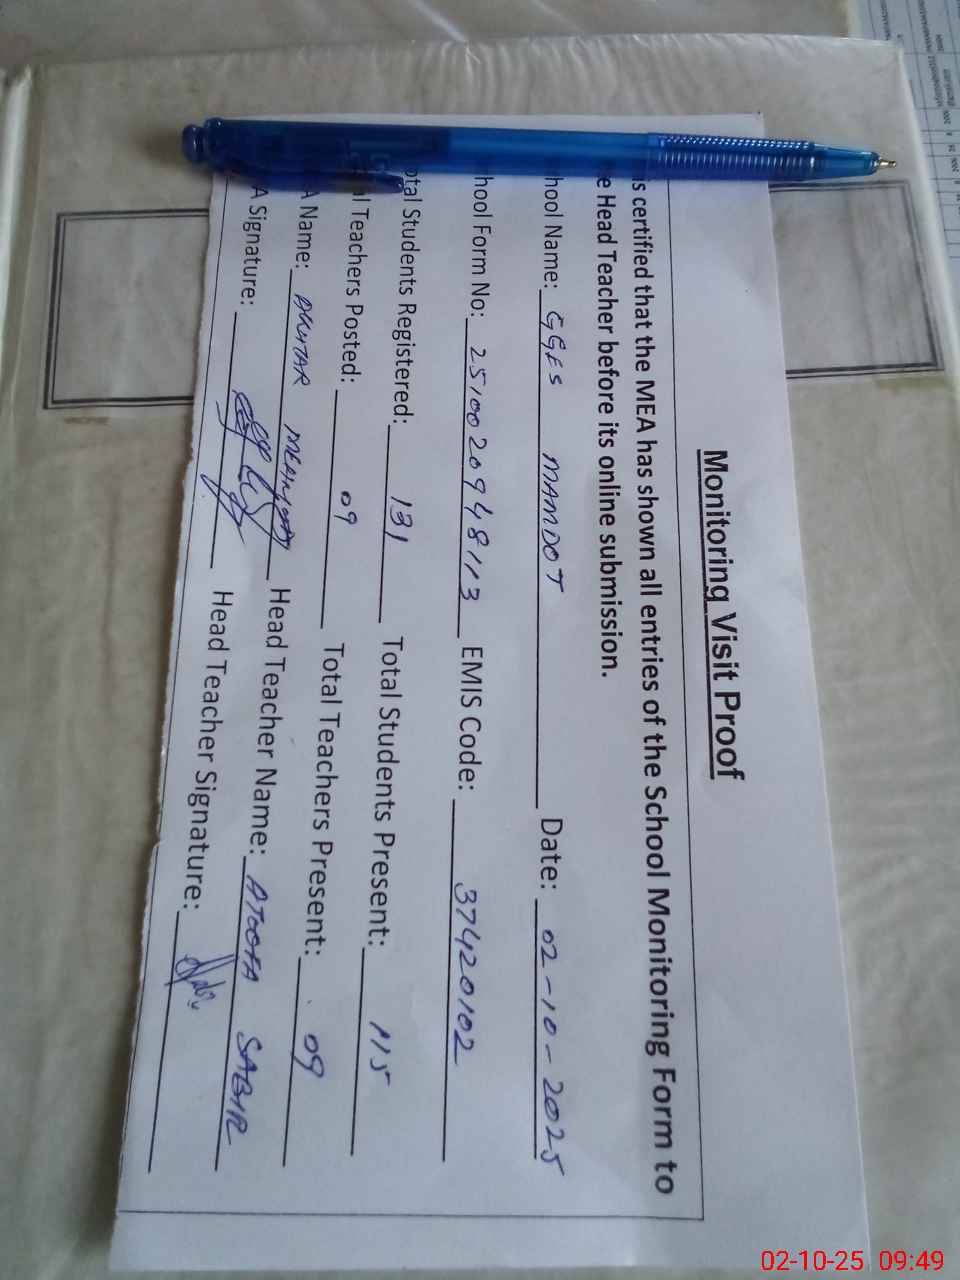 Monitoring Visit Proof
is certified that the MEA has shown all entries of the School Monitoring Form to
e Head Teacher before its online submission.
hool Name: GGES MAMDOT Date: 02-10-2025
hool Form No: 25100209948113 EMIS Code: 37420102
otal Students Registered: 131 Total Students Present: 115
al Teachers Posted: 09 Total Teachers Present: 09
A Name: AKHTAR Head Teacher Name: ATOOFA SABIR
A Signature: Head Teacher Signature:
02-10-25 09:49